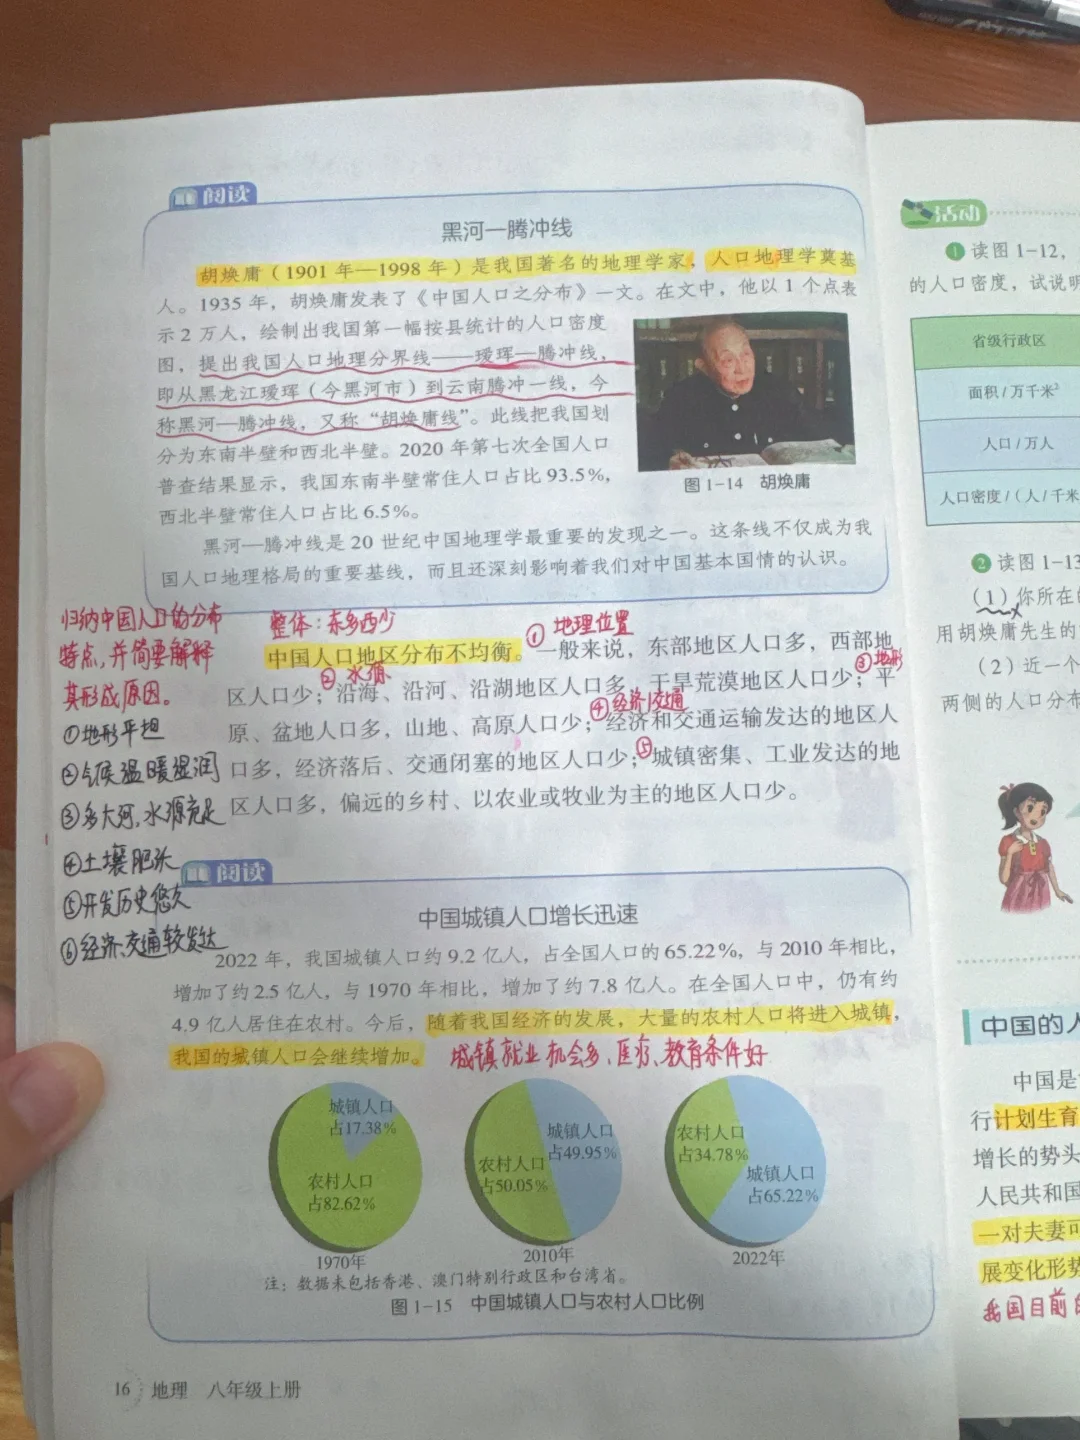 阅读
黑河—腾冲线
胡焕庸（1901 年—1998 年）是我国著名的地理学家，人口地理学奠基
人。1935 年，胡焕庸发表了《中国人口之分布》一文。在文中，他以 1 个点表
示 2 万人，绘制出我国第一幅按县统计的人口密度
图，提出我国人口地理分界线——瑷珲—腾冲线，
即从黑龙江瑷珲（今黑河市）到云南腾冲一线，今
称黑河—腾冲线，又称“胡焕庸线”。此线把我国划
分为东南半壁和西北半壁。2020 年第七次全国人口
普查结果显示，我国东南半壁常住人口占比 93.5%，
西北半壁常住人口占比 6.5%。
图 1-14 胡焕庸
黑河—腾冲线是 20 世纪中国地理学最重要的发现之一。这条线不仅成为我
国人口地理格局的重要基线，而且还深刻影响着我们对中国基本国情的认识。
归纳中国人口的分布
特点，并简要解释
其形成原因。
①地形平坦
②气候温暖湿润
③多大河，水源充足
④土壤肥沃
⑤开发历史悠久
⑥经济、交通较发达
整体：东多西少
① 地理位置
中国人口地区分布不均衡。一般来说，东部地区人口多，西部地
② 水源
③地形
区人口少；沿海、沿河、沿湖地区人口多，干旱荒漠地区人口少；平
④经济交通
原、盆地人口多，山地、高原人口少；经济和交通运输发达的地区人
⑤
口多，经济落后、交通闭塞的地区人口少；城镇密集、工业发达的地
区人口多，偏远的乡村、以农业或牧业为主的地区人口少。
阅读
中国城镇人口增长迅速
2022 年，我国城镇人口约 9.2 亿人，占全国人口的 65.22%，与 2010 年相比，
增加了约 2.5 亿人，与 1970 年相比，增加了约 7.8 亿人。在全国人口中，仍有约
4.9 亿人居住在农村。今后，随着我国经济的发展，大量的农村人口将进入城镇，
我国的城镇人口会继续增加。
城镇就业机会多、医疗、教育条件好
城镇人口
占17.38%
农村人口
占82.62%
1970年
城镇人口
占49.95%
农村人口
占50.05%
2010年
农村人口
占34.78%
城镇人口
占65.22%
2022年
注：数据未包括香港、澳门特别行政区和台湾省。
图 1-15 中国城镇人口与农村人口比例
16 地理 八年级上册
活动
1 读图 1-12，
的人口密度，试说明
省级行政区
面积 / 万千米²
人口 / 万人
人口密度 /（人 / 千米
2 读图 1-13
（1）你所在的
用胡焕庸先生的
（2）近一个
两侧的人口分布
中国的人
中国是
行计划生育
增长的势头
人民共和国
一对夫妻可
展变化形势
我国目前的